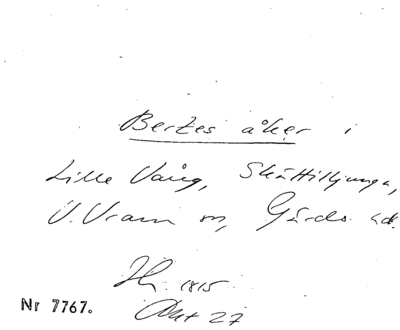 Bertes åker i
Lilla Vång, Skättiljunga,
V. Vram sn, Gärds hd.
Hy. 1815
Akt 27
Nr 7767.